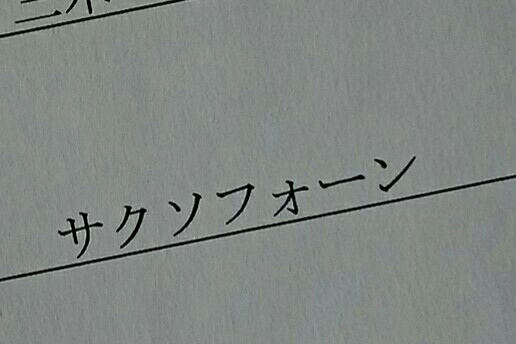 サクソフォーン